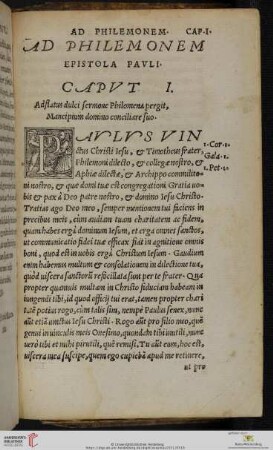 AD PHILEMONEM. CAP.I.
AD PHILEMONEM
EPISTOLA PAVLI.
CAPVT I.
Adflatus dulci sermone Philemona pergit,
Mancipium domino conciliare suo.
PAVLVS VIN
ctus Christi Iesu, & Timotheus frater,
Philemoni dilecto, & collegæ nostro, &
Aphiæ dilectæ, & Archippo commilito-
ni nostro, & quæ domi tuæ est congregationi Gratia uo-
bis et pax à Deo patre nostro, & domino Iesu Christo.
Gratias ago Deo meo, semper mentionem tui faciens in
precibus meis, cum audiam tuam charitatem ac fidem,
quam habes ergà dominum Iesum, et erga omnes sanctos,
ut communicatio fidei tuæ efficax fiat in agnitione omnis
boni, quod est in uobis ergà Christum Iesum. Gaudium
enim habemus multum & consolationem in dilectione tua,
quòd uiscera sanctorū refocillata sunt per te frater. Qua
propter quamuis multam in Christo fiduciam habeam in
iungendi tibi, id quod officij tui erat, tamen propter chari
tatē potius rogo, cum talis sim, nempe Paulus senex, nunc
aūt etiā uinctus Iesu Christi. Rogo aūt pro filio meo, quē
genui in uinculis meis Onesimo, quondam tibi inutili, nunc
uerò tibi et mihi p utili, quē remisi. Tu aūt eum, hoc est,
uiscera mea suscipe, quem ego cupiebā apud me retinere,
ut pro
1.Cor.1.
Gala.1.
1.Pet.1.